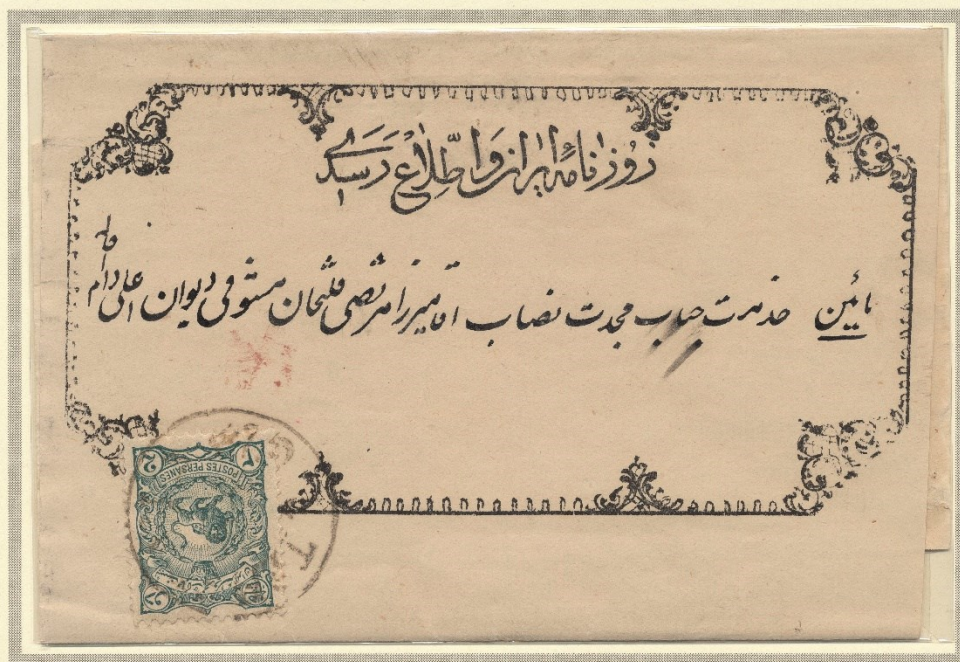 روزنامهٔ ایران و اطلاع رسدی
نائین خدمت جناب مجدت نصاب اقا میرزا مرتضی قلیخان مستوفی دیوان اعلی دام
POSTES PERSANES
2
2
T